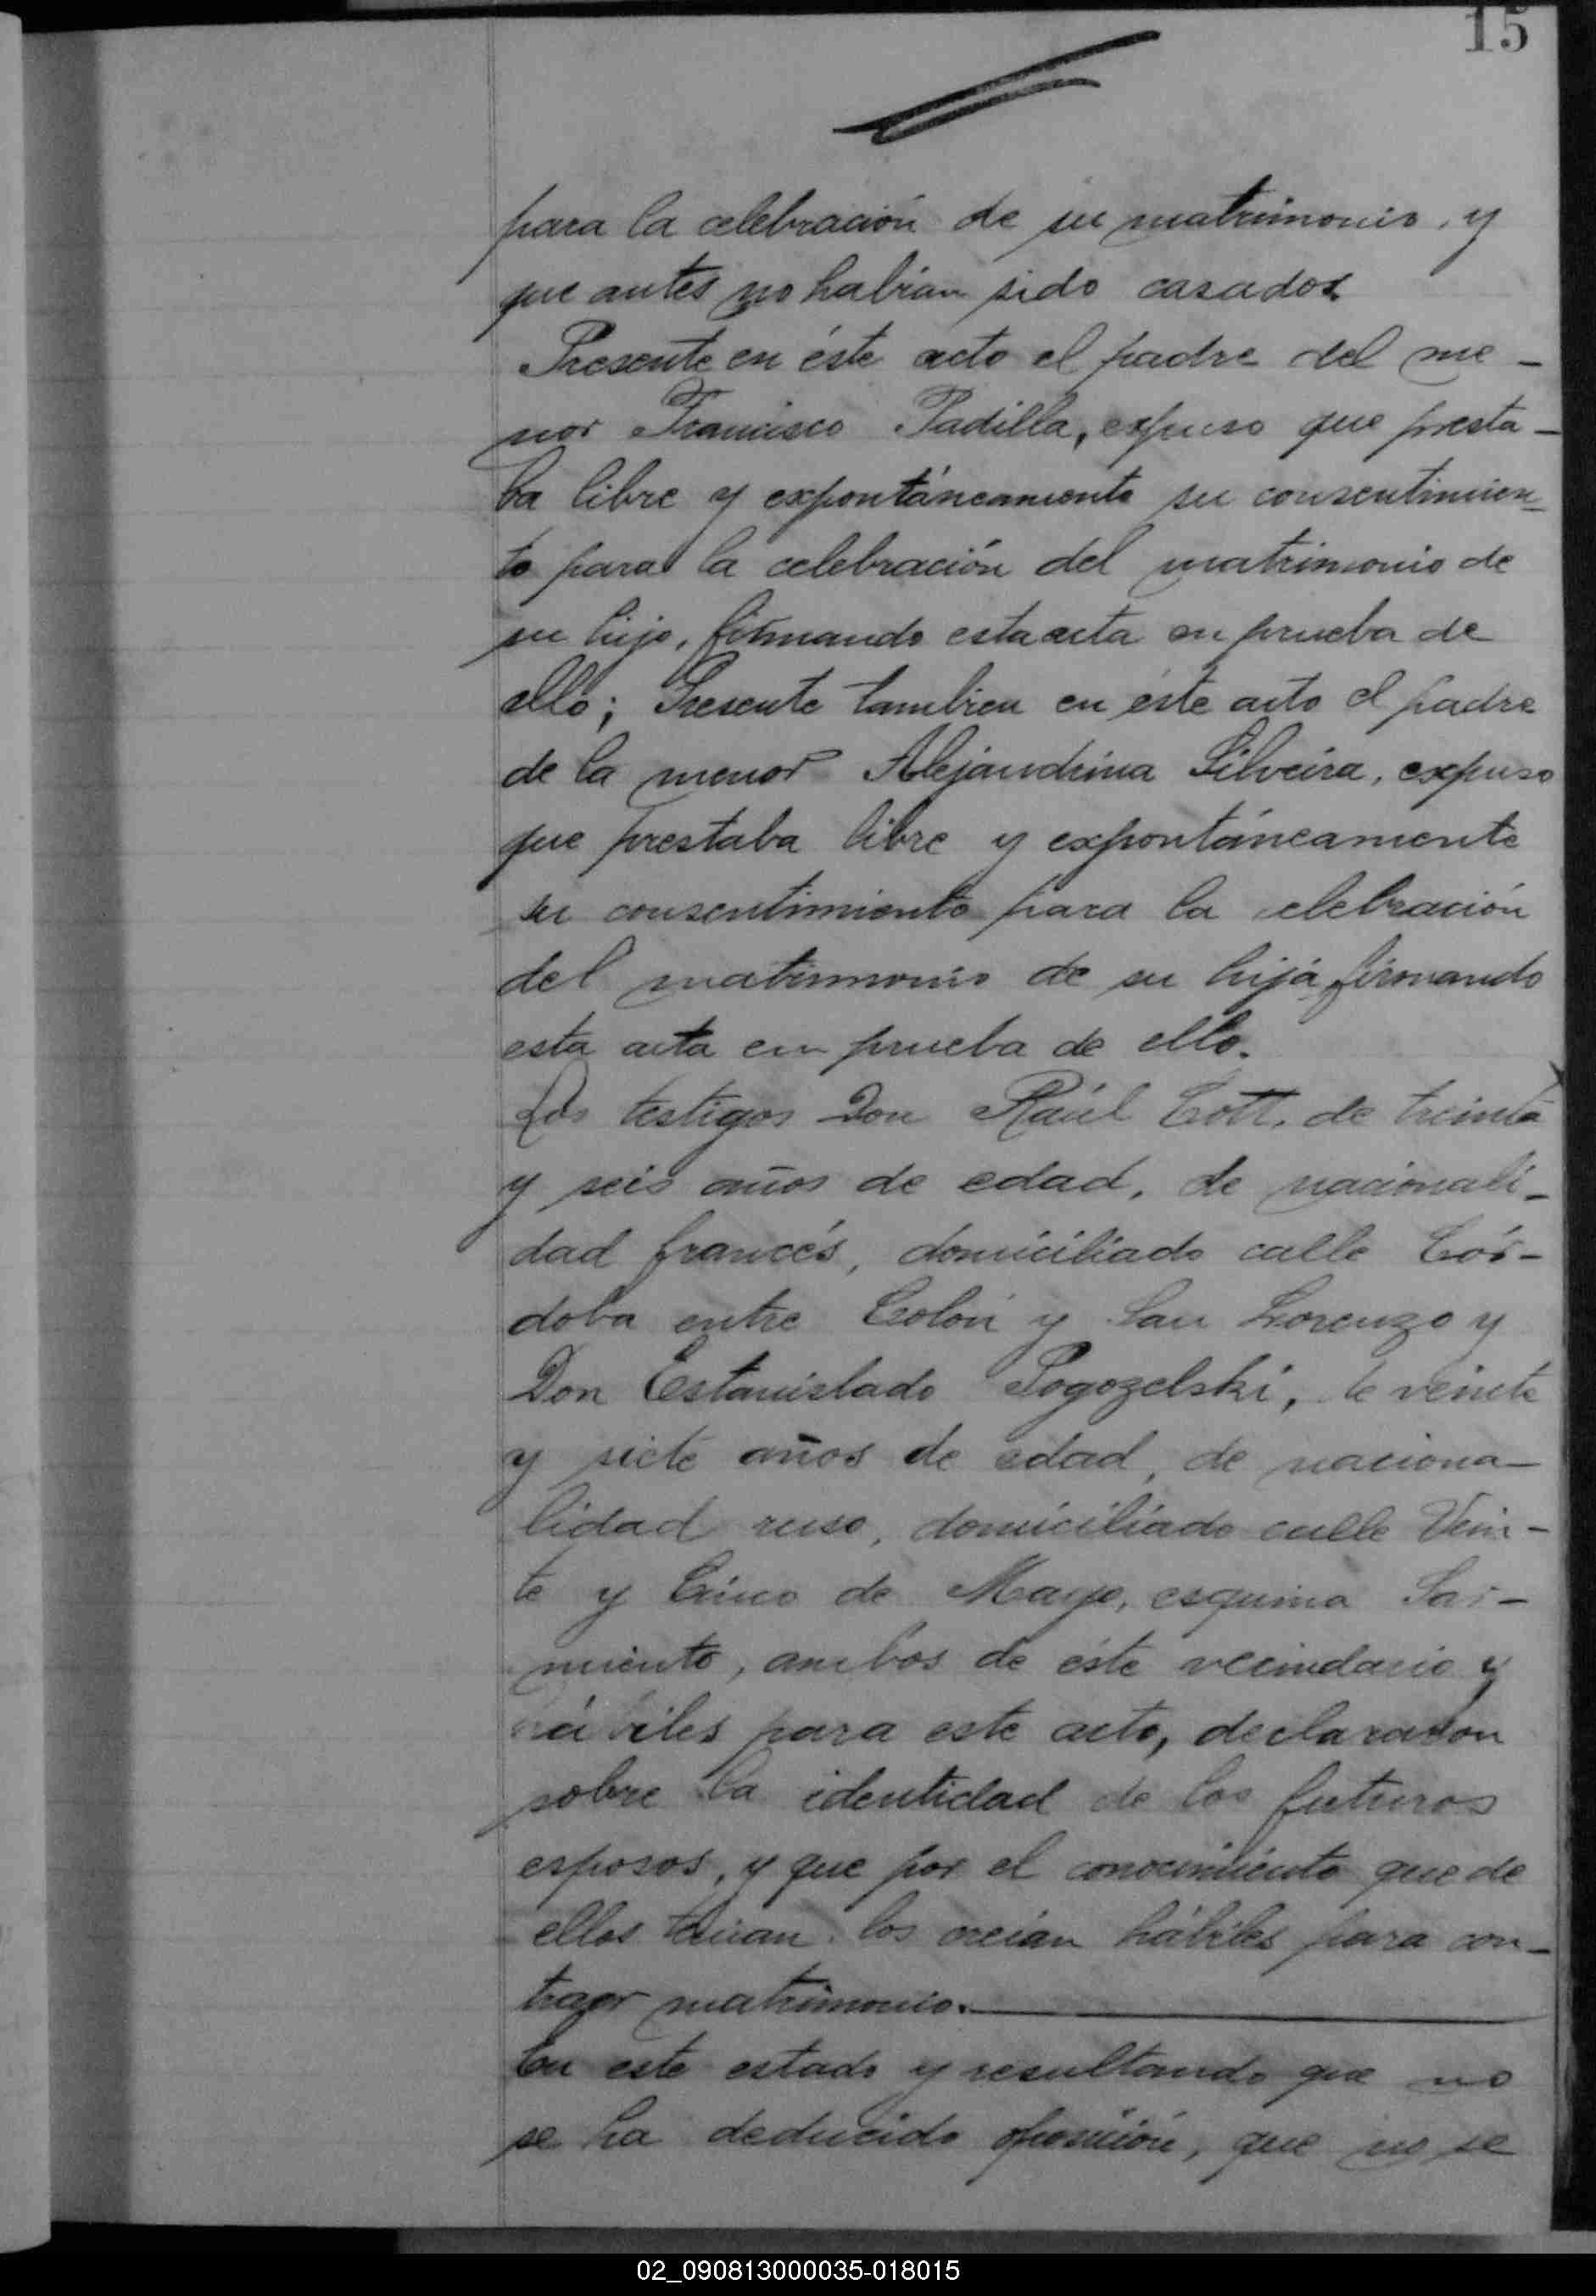 15
para la celebración de su matrimonio, y
que antes no habían sido casados.
Presente en éste acto el padre del me-
nor Francisco Padilla, expuso que presta-
ba libre y expontáneamente su consentimien-
to para la celebración del matrimonio de
su hijo, firmando esta acta en prueba de
ello; Presente tambien en éste acto el padre
de la menor Alejandrina Silveira, expuso
que prestaba libre y expontáneamente
su consentimiento para la celebración
del matrimonio de su hija, firmando
esta acta en prueba de ello.
Los testigos Don Raúl Cott, de treinta
y seis años de edad, de nacionali-
dad francés, domiciliado calle Cór-
doba entre Colón y San Lorenzo y
Don Estanislado Pogozelski, de veinte
y siete años de edad, de naciona-
lidad ruso, domiciliado calle Vein-
te y Cinco de Mayo, esquina Sar-
miento, ambos de éste vecindario y
hábiles para este acto, declararon
sobre la identidad de los futuros
esposos, y que por el conocimiento que de
ellos tenian los creían hábiles para con-
traer matrimonio.
En este estado y resultando que no
se ha deducido oposición, que no se
02_090813000035-018015